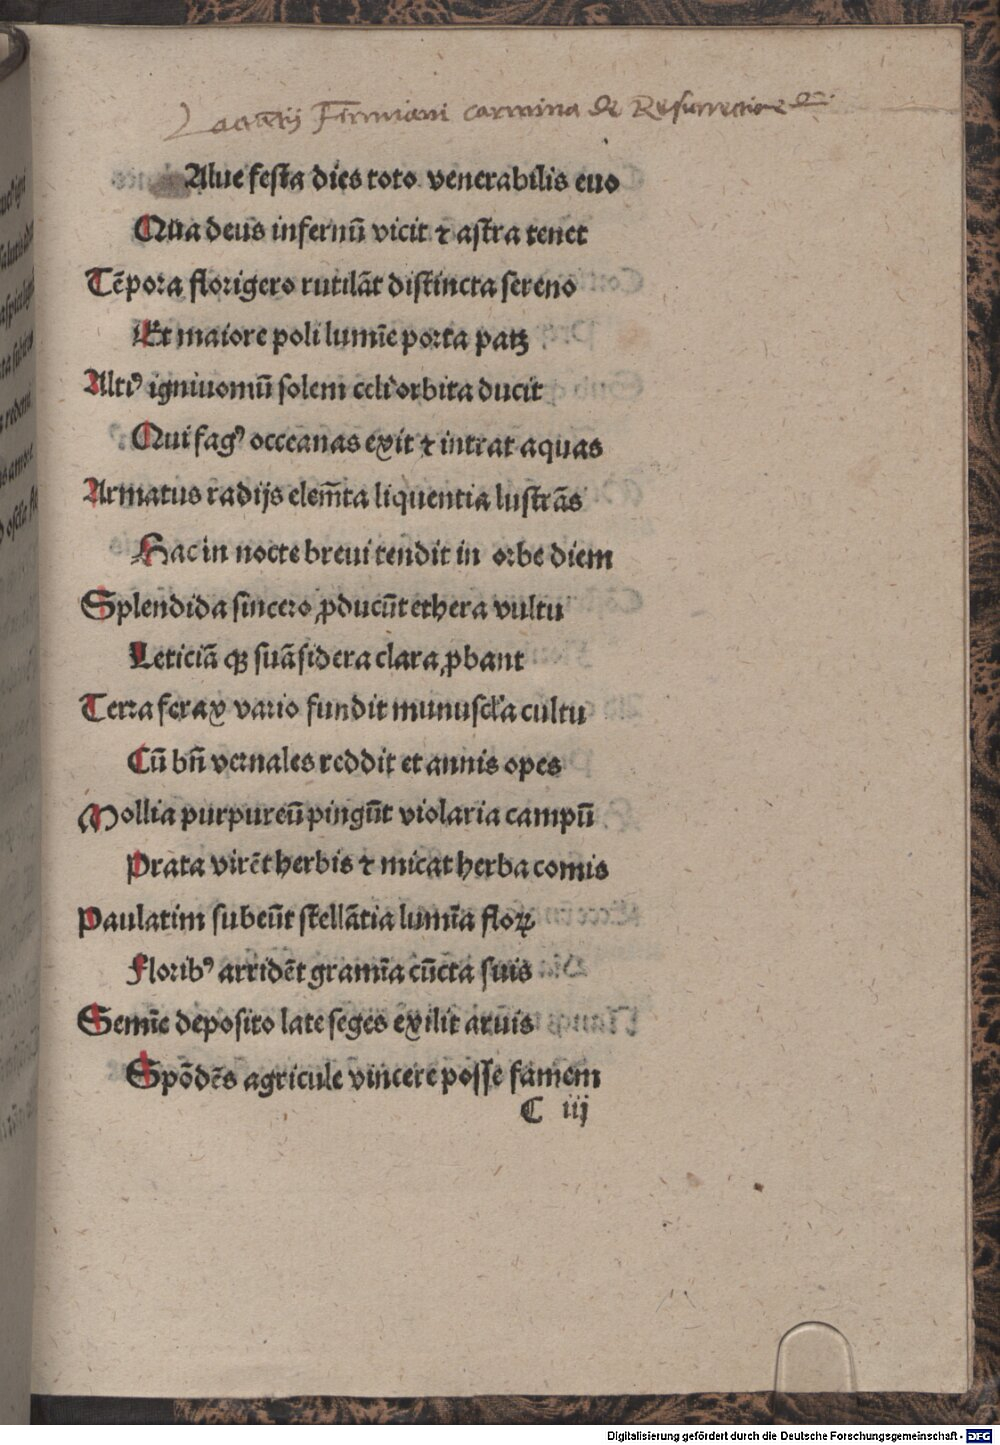 Lactãtij Firmiani carmina de Resurrectione dñi
Alue festa dies toto venerabilis euo
Qua deus infernũ vicit ⁊ astra tenet
Tẽpora florigero rutilãt distincta sereno
Et maiore poli lumĩe porta patꝫ
Altiꝰ igniuomũ solem celi orbita ducit
Qui fagꝰ occeanas exit ⁊ intrat aquas
Armatus radijs elem̃ta liquentia lustrãs
Hac in nocte breui tendit in orbe diem
Splendida sincero ꝓducũt ethera vultu
Leticiã qꝫ suã sidera clara ꝓbant
Terra ferax vario fundit munuscl'a cultu
Cũ bñ vernales reddit et annis opes
Mollia purpureũ pingũt violaria campũ
Prata virẽt herbis ⁊ micat herba comis
Paulatim subeũt stellãtia lumĩa floꝝ
Floribꝰ arridẽt gramĩa cũcta suis
Semĩe deposito late seges exilit aruis
Spõdẽs agricule vincere posse famem
C iij
Digitalisierung gefördert durch die Deutsche Forschungsgemeinschaft - DFG